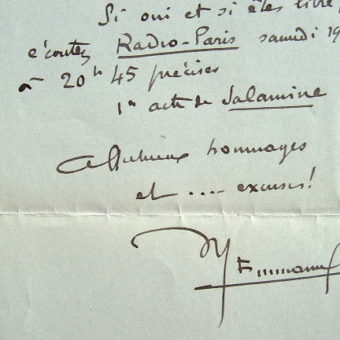 Si oui et si êtes libre,
écoutez Radio-Paris samedi 19
à 20h 45 précises
1er acte de Salamine
Affectueux hommages
et .... excuses!
M Emmanu